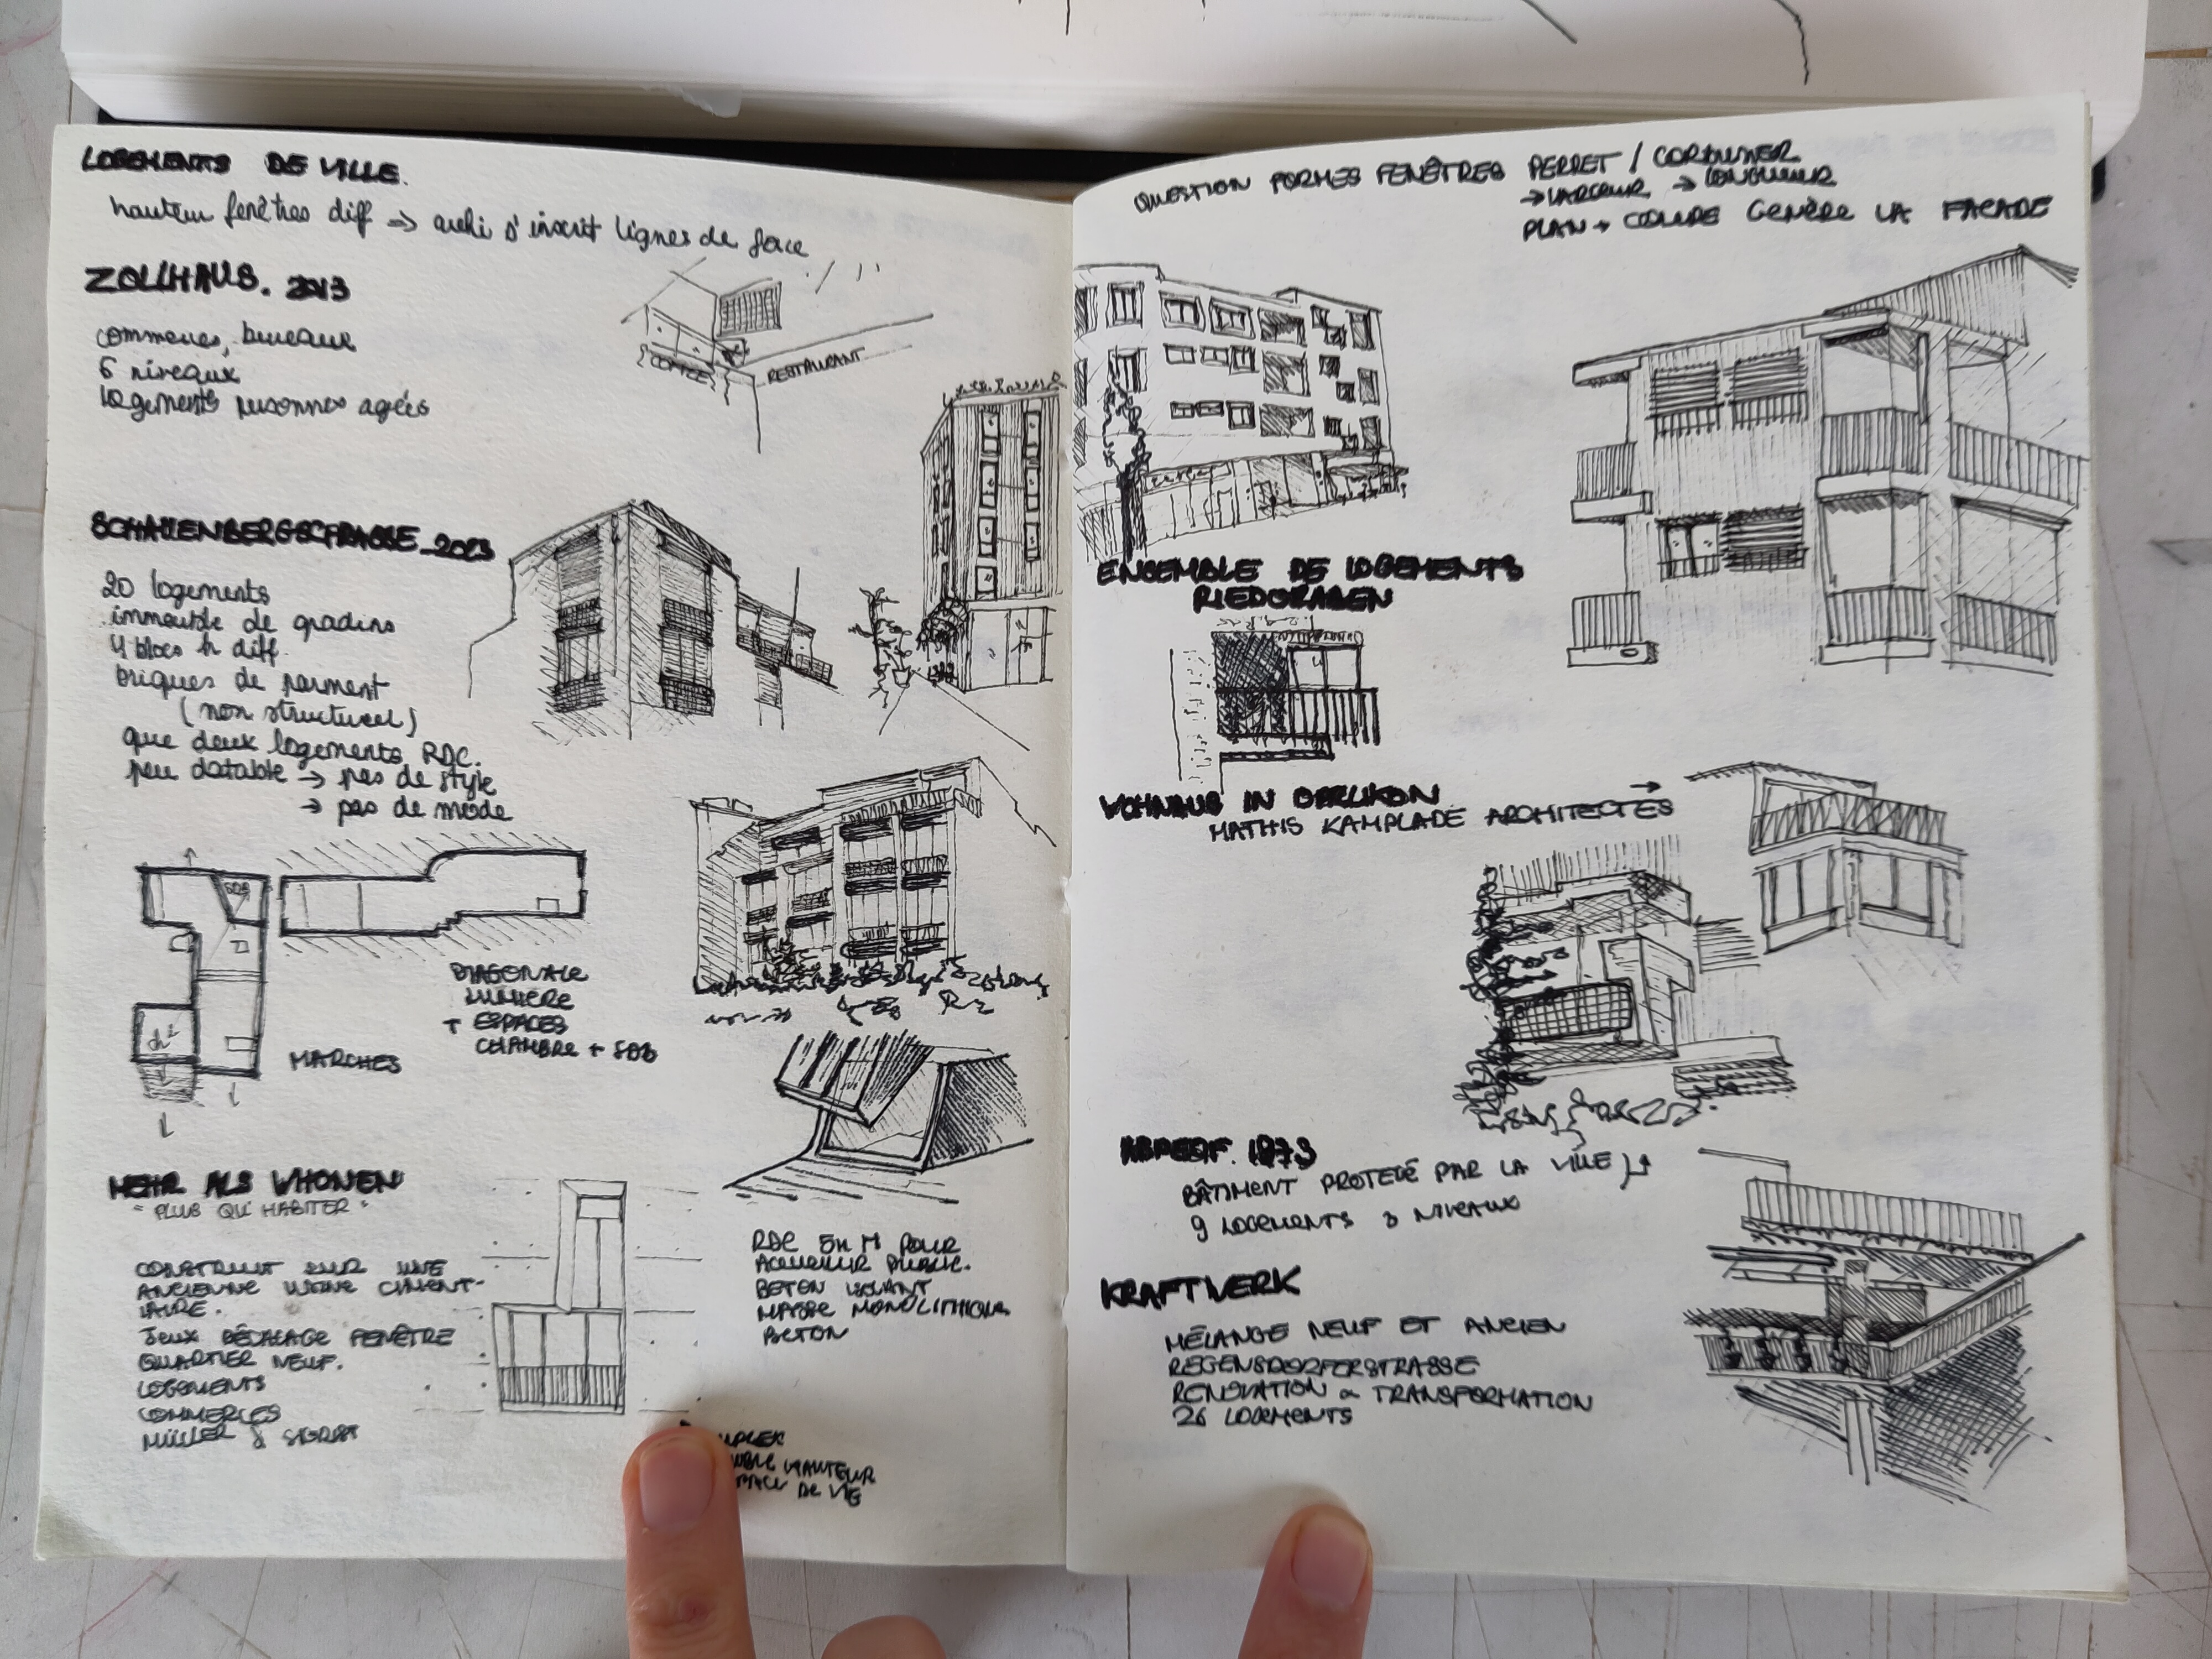 LOGEMENTS DE VILLE.
hauteur fenêtres diff → archi s'inscrit lignes de face
ZOLLHAUS. 2013
commerces, bureaux
6 niveaux
logements personnes agées
COFFEE
RESTAURANT
SCHAUENBERGSTRASSE_2023
20 logements
immeuble de gradins
4 blocs h diff.
briques de parment
(non structurel)
que deux logements RDC.
peu datable → pas de style
→ pas de mode
SDB
ch
DIAGONALE
LUMIÈRE
+ ESPACES
CHAMBRE + SDB
MARCHES
MEHR ALS WHONEN
"PLUS QU'HABITER"
CONSTRUIT SUR UNE
ANCIENNE USINE CIMENT-
IAIRE.
Jeux DÉCALAGE FENÊTRE
QUARTIER NEUF.
LOGEMENTS
COMMERCES
MÜLLER & SIGRIST
RDC 5m H POUR
ACCUEILLIR PUBLIC.
BETON ISOLANT
MASSE MONOLITHIQUE
BETON
HAUTEUR
DE VIE
QUESTION FORMES FENÊTRES PERRET / CORBUSIER
→ LARGEUR → LONGUEUR
PLAN + COUPE GENÈRE LA FACADE
ENSEMBLE DE LOGEMENTS
RIEDGRABEN
WOHNAUS IN OERLIKON →
MATHIS KAMPLADE ARCHITECTES
1973
BÂTIMENT PROTEGÉ PAR LA VILLE
9 LOGEMENTS 3 NIVEAUX
KRAFTWERK
MÉLANGE NEUF ET ANCIEN
REGENSDORFERSTRASSE
RENOVATION & TRANSFORMATION
26 LOGEMENTS